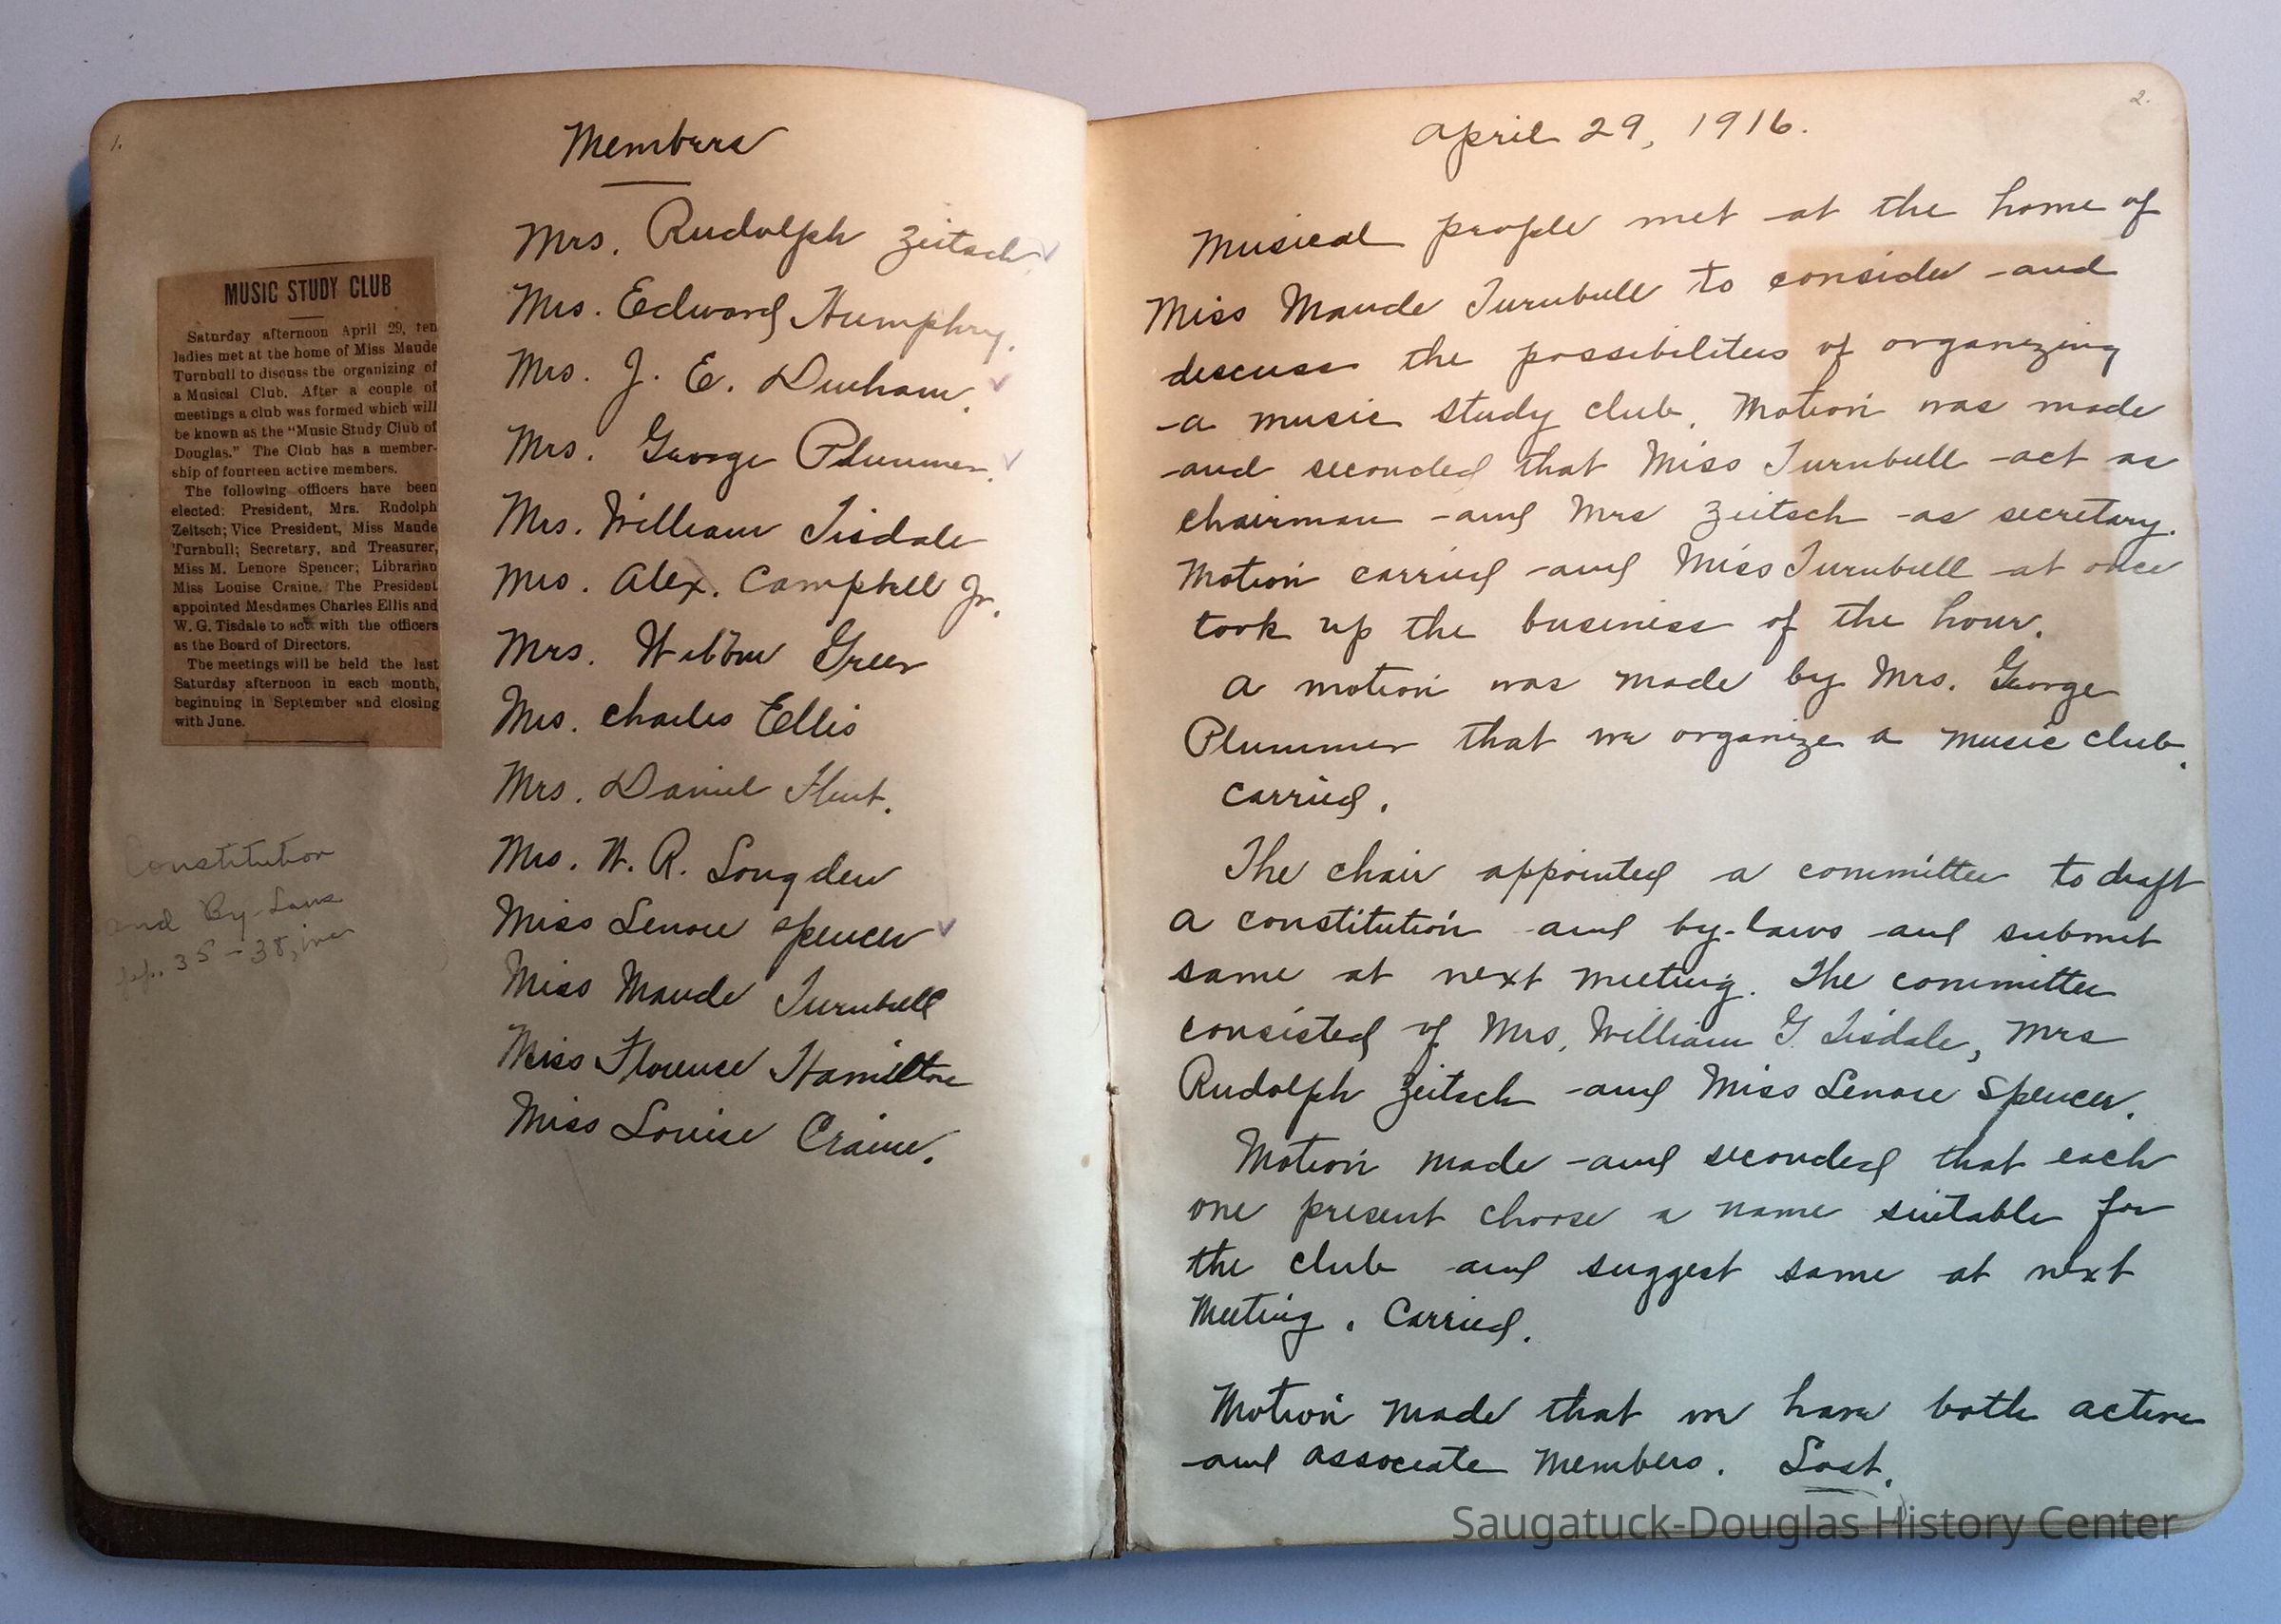 1.
MUSIC STUDY CLUB
Saturday afternoon April 29, ten
ladies met at the home of Miss Maude
Turnbull to discuss the organizing of
a Musical Club. After a couple of
meetings a club was formed which will
be known as the "Music Study Club of
Douglas." The Club has a member-
ship of fourteen active members.
The following officers have been
elected: President, Mrs. Rudolph
Zeitsch; Vice President, Miss Maude
Turnbull; Secretary, and Treasurer,
Miss M. Lenore Spencer; Librarian
Miss Louise Craine. The President
appointed Mesdames Charles Ellis and
W. G. Tisdale to act with the officers
as the Board of Directors.
The meetings will be held the last
Saturday afternoon in each month,
beginning in September and closing
with June.
Constitution
and By-Laws
pp. 35-38,
Members
Mrs. Rudolph Zeitsch
Mrs. Edward Humphry.
Mrs. J. E. Durham.
Mrs. George Plummer.
Mrs. William Tisdale
Mrs. Alex. Campbell Jr.
Mrs. Green
Mrs. Charles Ellis
Mrs. Daniel
Mrs. W. R. Longden
Miss Lenore Spencer
Miss Maude Turnbull
Miss Florence Hamilton
Miss Louise Craine.
2.
April 29, 1916.
Musical people met at the home of
Miss Maude Turnbull to consider and
discuss the possibilities of organizing
a music study club. Motion was made
and seconded that Miss Turnbull act as
chairman and Mrs Zeitsch as secretary.
Motion carried and Miss Turnbull at once
took up the business of the hour.
A motion was made by Mrs. George
Plummer that we organize a music club.
Carried.
The chair appointed a committee to draft
a constitution and by-laws and submit
same at next meeting. The committee
consisted of Mrs. William G. Tisdale, Mrs
Rudolph Zeitsch and Miss Lenore Spencer.
Motion made and seconded that each
one present choose a name suitable for
the club and suggest same at next
meeting. Carried.
Motion made that we have both active
and associate members. Lost.
Saugatuck-Douglas History Center